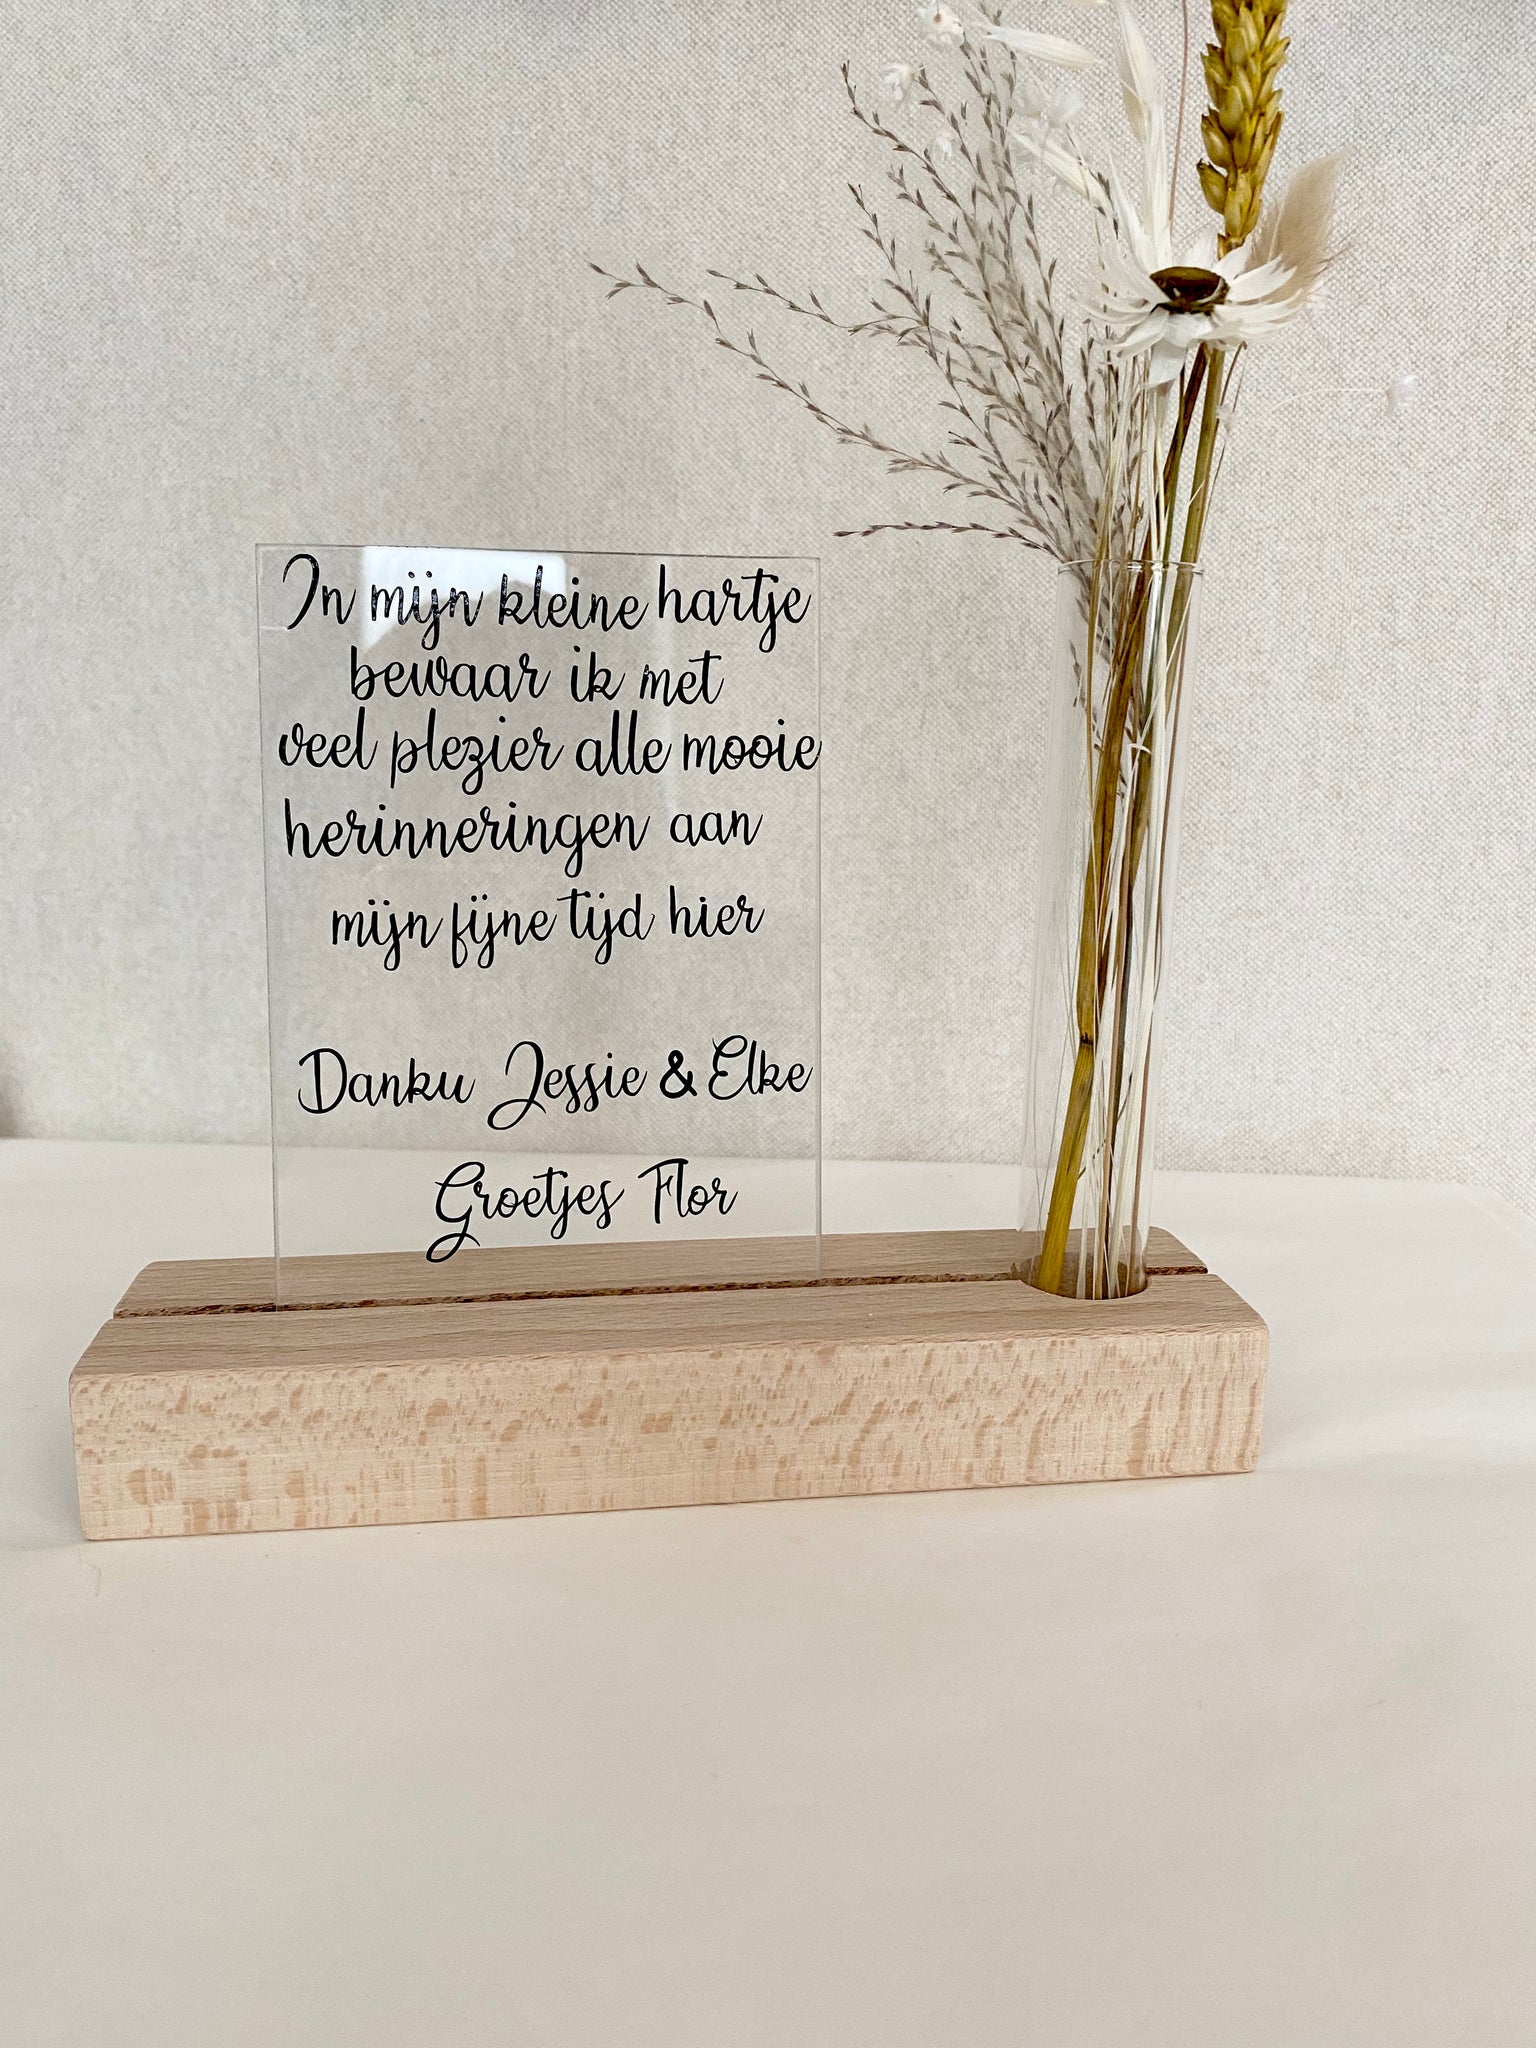 In mijn kleine hartje
bewaar ik met
veel plezier alle mooie
herinneringen aan
mijn fijne tijd hier
Danku Jessie & Elke
Groetjes Flor